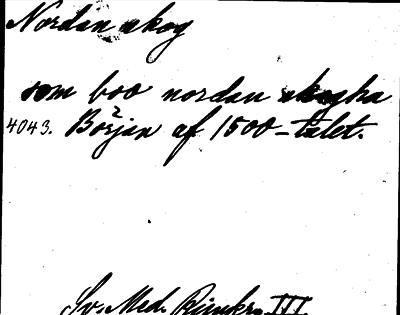 Nordan skog
som boo nordan skogha
4043. Början af 1500-talet.
Sv. Med. Rimkr. III